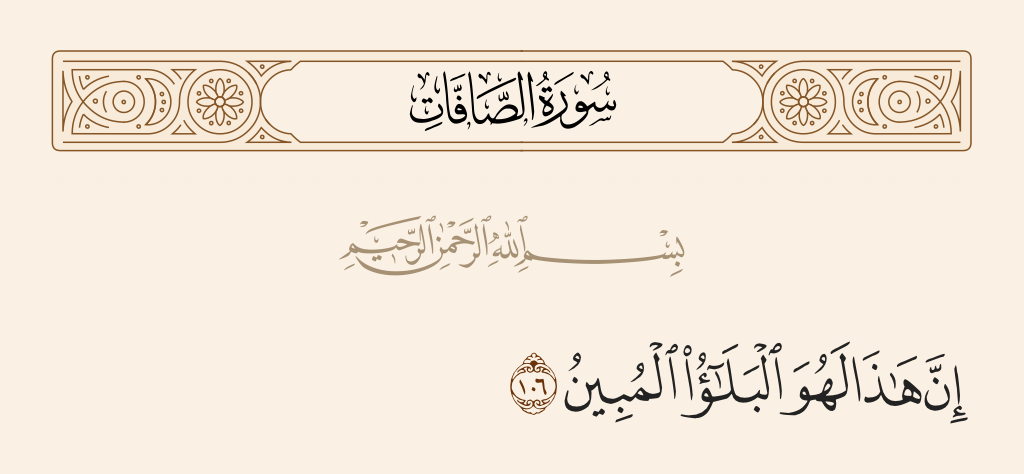 سُورَةُ الصَّافَّاتِ
بِسْمِ ٱللَّهِ ٱلرَّحْمَٰنِ ٱلرَّحِيمِ
إِنَّ هَٰذَا لَهُوَ ٱلْبَلَٰٓؤُا۟ ٱلْمُبِينُ ١٠٦